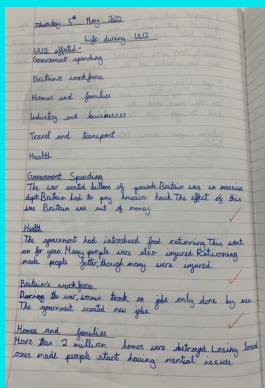 Thursday 5th May 2022
Life during WW2
WW2 affected -
Government spending
Britain's workforce
Homes and families
Industry and businesses
Travel and transport
Health
Government Spending
The war costed billions of pounds. Britain was in massive
dept. Britain had to pay America back. The effect of this
was Britain was out of money.
Health
The government had introduced food rationing. This went
on for years. Many people were also injured. Rationing
made people fitter, though many were injured.
Britain's workforce
During the war, women took on jobs only done by men
The government created new jobs.
Homes and families
More than 2 million homes were destroyed. Losing loved
ones made people start having mental issues.